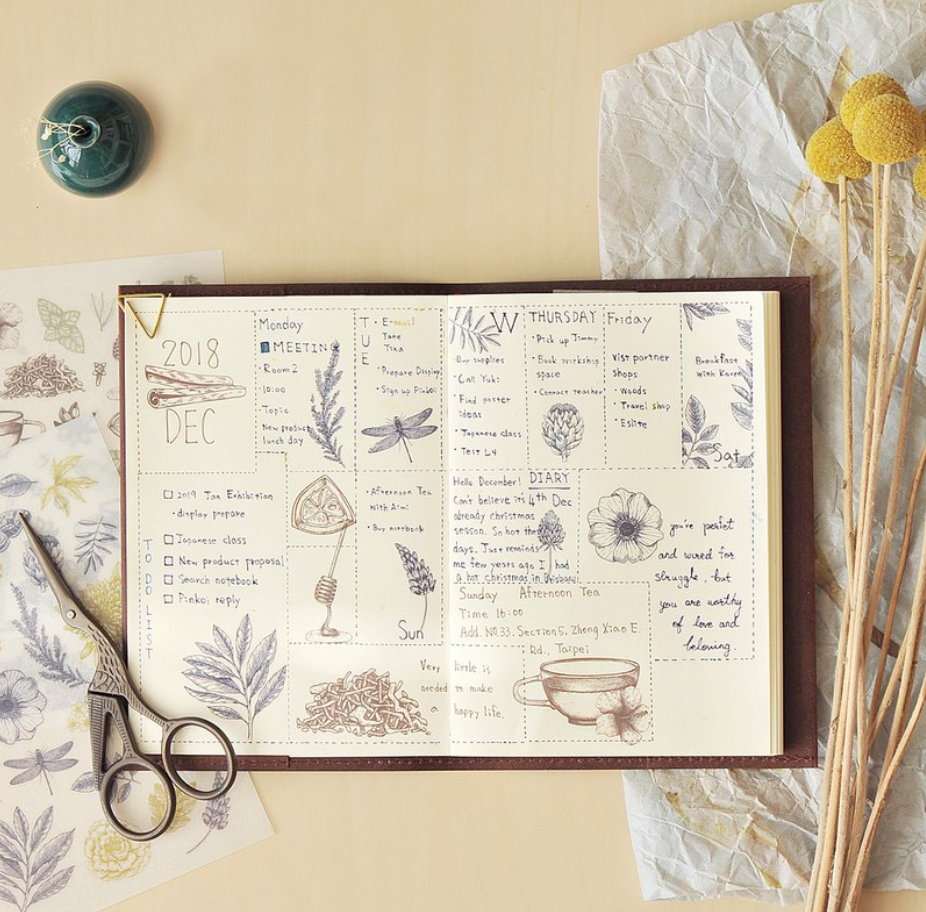 2018
DEC
Monday
MEETING
· Room 2
· 10:00
· Topic
New product
lunch day
TUE
· E-mail
Jane
Tina
· Prepare Display
· Sign up Pinkoi
W
· Buy supplies
· Call Yuki
· Find poster
ideas
· Japanese class
· Test L4
THURSDAY
· Pick up Jimmy
· Book workshop
space
· Contact teacher
Friday
Visit partner
shops
· Woods
· Travel shop
· Eslite
Breakfast
with Karen
Sat
TO DO LIST
2019 Jan Exhibition
· display prepare
Japanese class
New product proposal
Search notebook
Pinkoi reply
· Afternoon Tea
with Aimi
· Buy notebook
Sun
DIARY
4th Dec
Hello December!
Can't believe it's
already christmas
season. So hot this
days. Just reminds
me few years ago I had
a hot christmas in Brisbane.
you're perfect
and wired for
struggle, but
you are worthy
of love and
beloning.
Sunday Afternoon Tea
Time 16:00
Add. NO.33. Section5. Zhong Xiao E.
Rd., Taipei
Very little is
needed to make
a happy life.